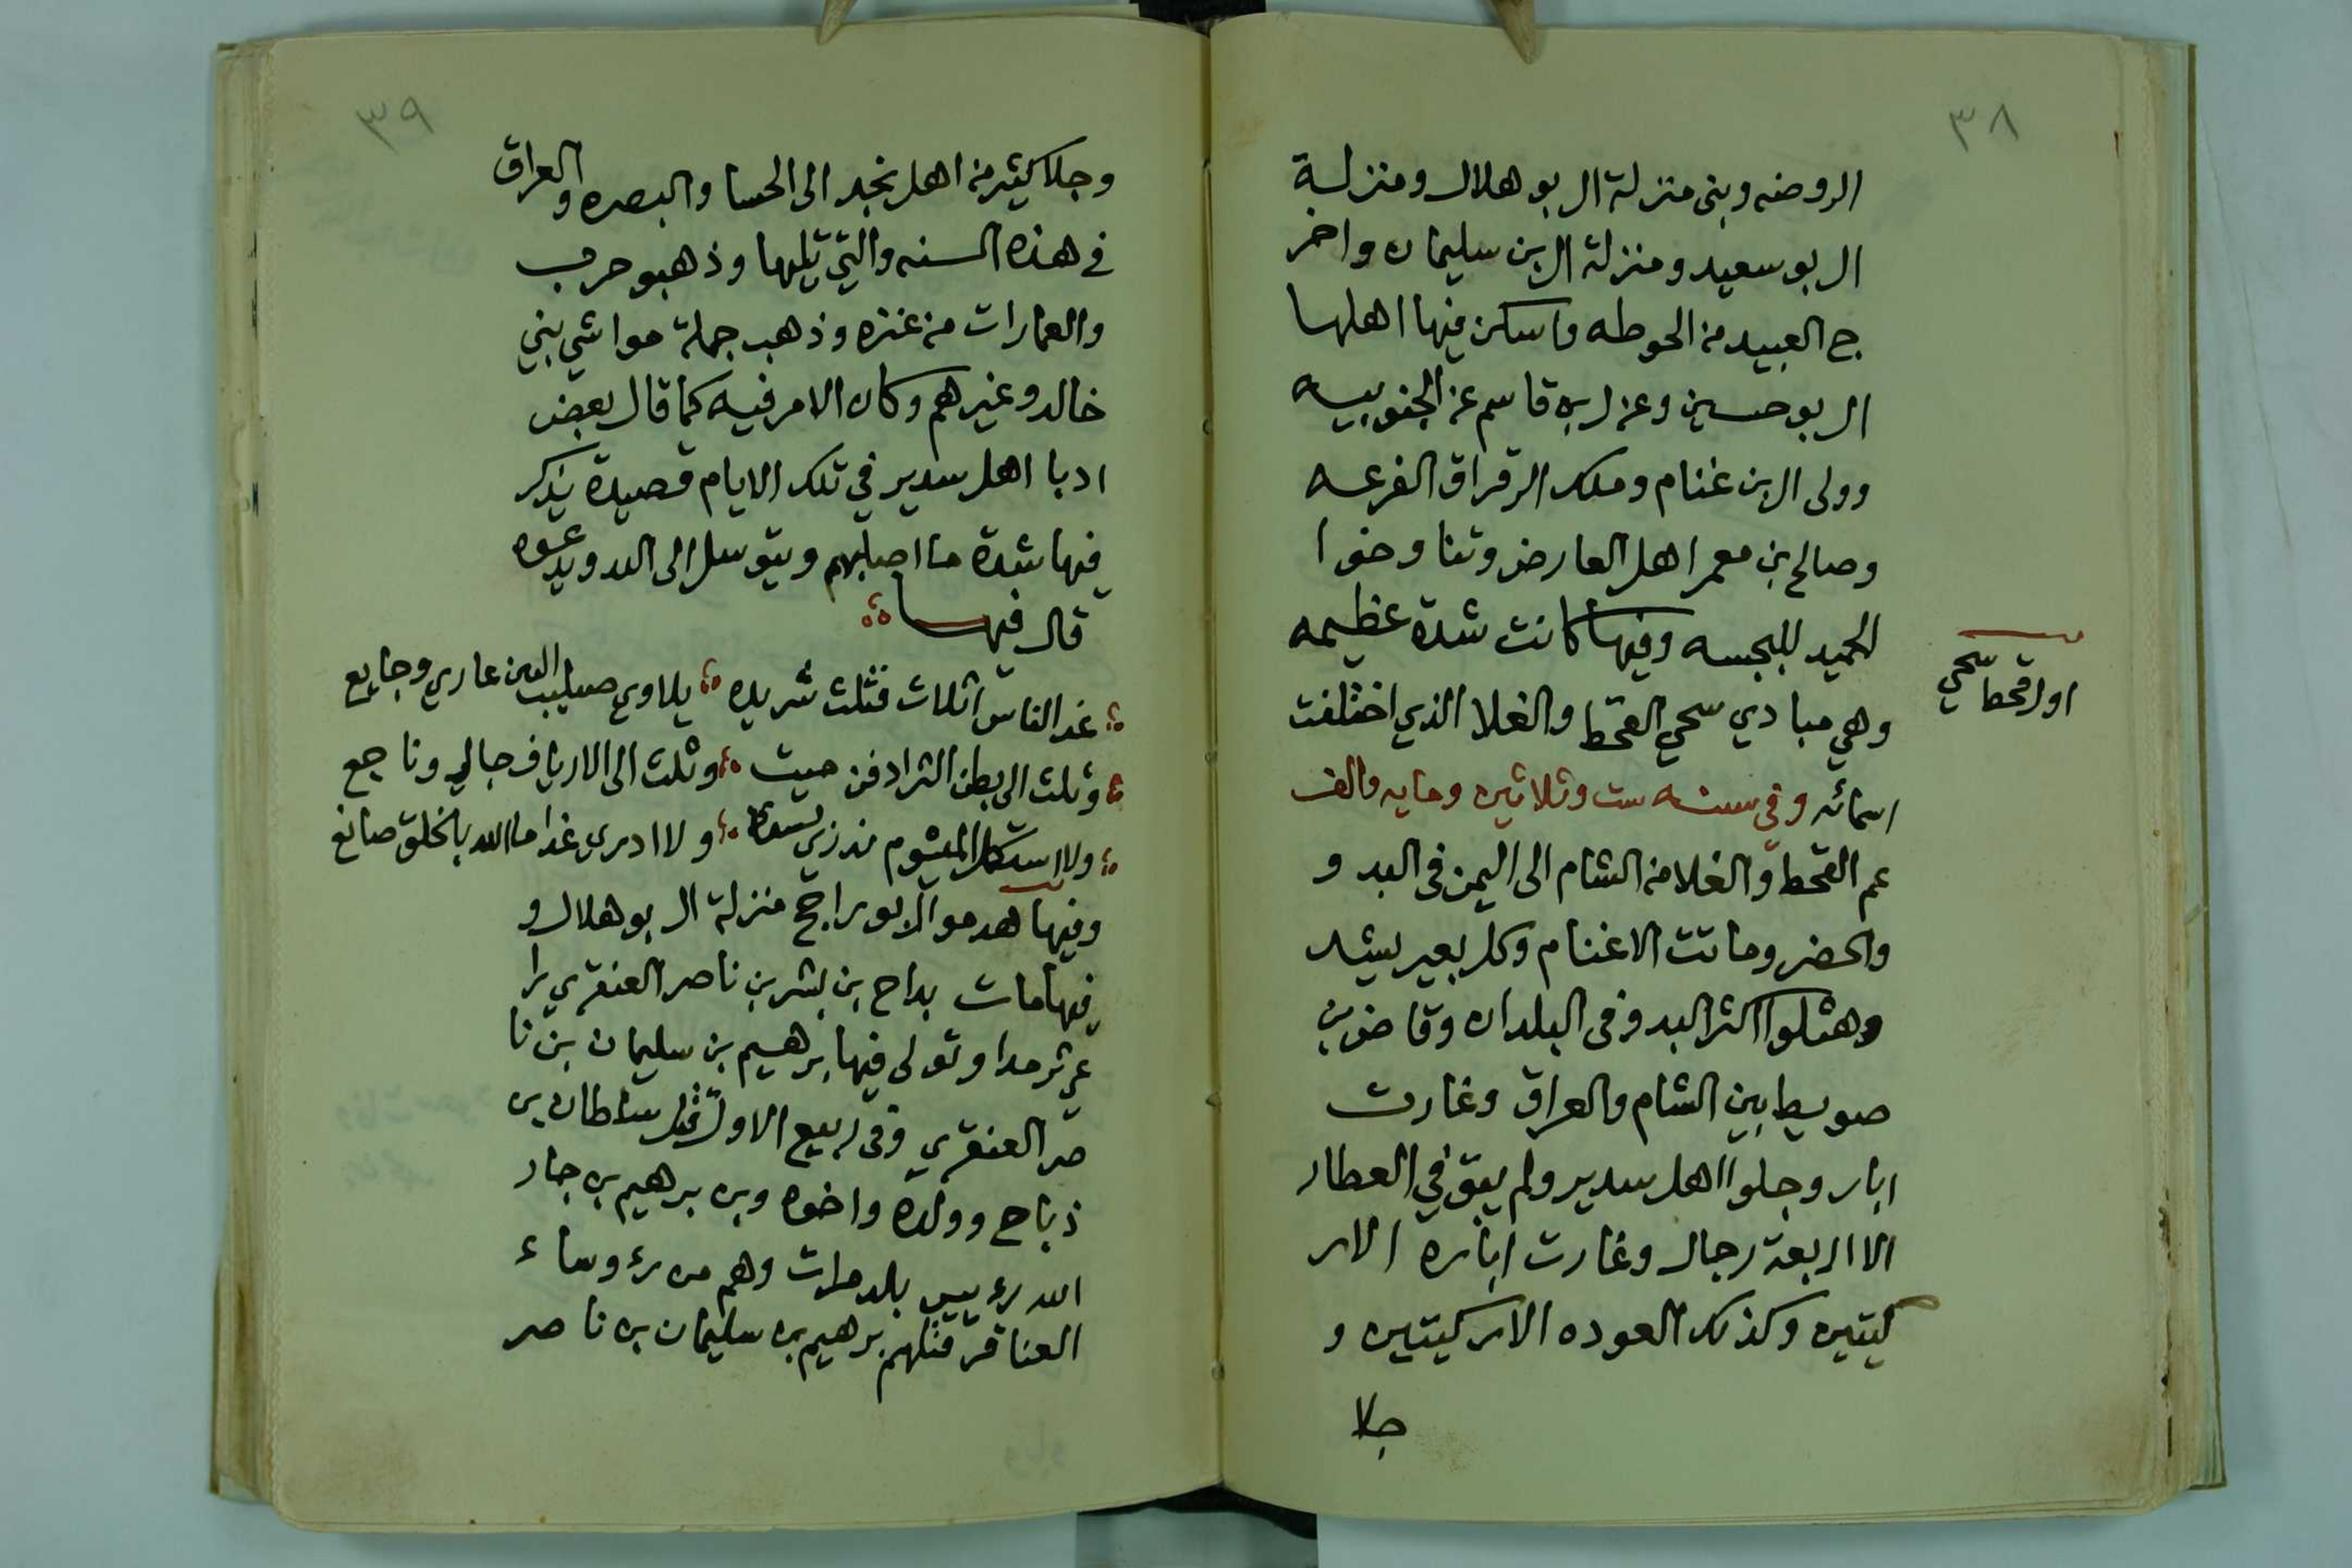 ٣٨
الروضه وبنى منزلة ال بو هلال ومنزلة
ال بو سعيد ومنزلة ال بن سليمان واخر
ج العبيد من الحوطه واسكن فيها اهلها
ال بو حسين وعزل بن قاسم عن الجنوبيه
وولى ال بن غنام وملك الرقراق الفرعه
وصالح بن معمر اهل العارض وتناوخوا
الحميد للبجسه وفيها كانت شدة عظيمه
وهي مبادي سحي القحط والغلا الذي اختلفت
اول قحط سحي
اسمائه وفي سنه ست وثلاثين ومايه والف
عم القحط والغلا من الشام الى اليمن في البدو
والحضر وماتت الاغنام وكل بعير يشد
وهثلوا اكثر البدو في البلدان وقاض بن
صويط بين الشام والعراق وغارت
ابار وجلوا اهل سدير ولم يبق في العطار
الا اربعة رجال وغارت اباره الا ر
كيتين وكذلك العوده الا ركيتين و
جلا
٣٩
وجلا كثير من اهل نجد الى الحسا والبصره والعراق
في هذه السنه والتي تليها وذهبو حرب
والعمارات من عنزه وذهب جملة مواشي بني
خالد وغيرهم وكان الامر فيه كما قال بعض
ادبا اهل سدير في تلك الايام قصيدة يذكر
فيها شدة ما اصابهم ويتوسل الى الله ويدعوه
قال فيها
غدا الناس اثلاث فثلث شريده يلاوي صليب البين عاري وجايع
وثلث الى بطن الثرا دفن ميت وثلث الى الارياف جالي وناجع
ولا ادري غدا ما الله بالخلق صانع
وفيها هدمو ال ابو راجح منزلة ال بو هلال و
فيها مات بداح بن بشر بن ناصر العنقري را
عي ثرمدا وتولى فيها برهيم بن سليمان بن نا
صر العنقري وفي ربيع الاول قتل سلطان بن
ذباح وولده واخوه وبن برهيم بن جار
الله رءييس بلد مرات وهم من رءوساء
العناقر قتلهم برهيم بن سليمان بن ناصر